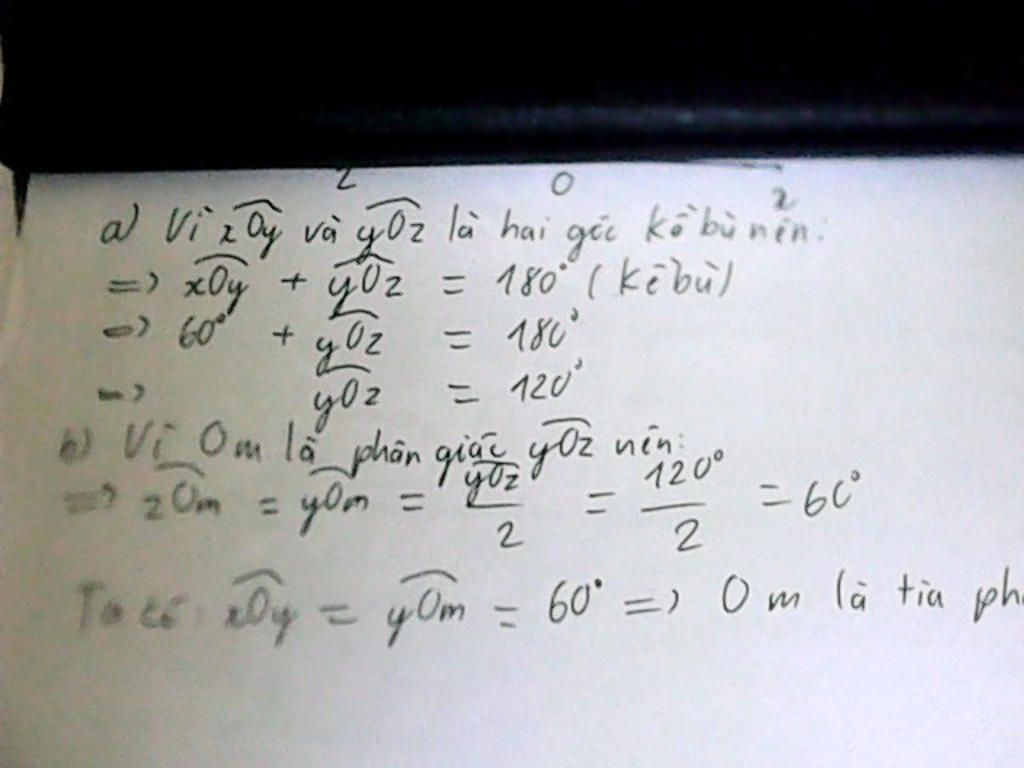 O
a) Vì xOy và yOz là hai góc kề bù nên:
=> xOy + yOz = 180° (kề bù)
=> 60° + yOz = 180°
=> yOz = 120°
b) Vì Om là phân giác yOz nên:
=> zOm = yOm = yOz/2 = 120°/2 = 60°
Ta có: xOy = yOm = 60° => Om là tia